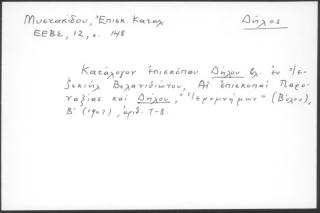 Μυστακίδου, Ἐπισκ. Καταλ Δῆλος
ΕΕΒΣ, 12, σ. 148
Κατάλογον ἐπισκόπου Δήλου βλ. ἐν Ἰε-
ζεκιὴλ Βελανιδιώτου, Αἱ ἐπισκοπαὶ Παρο-
ναξίας καὶ Δήλου, "Ἱερομνήμων" (Βόλου),
Β' (1907), ἀριθ. 7-8.